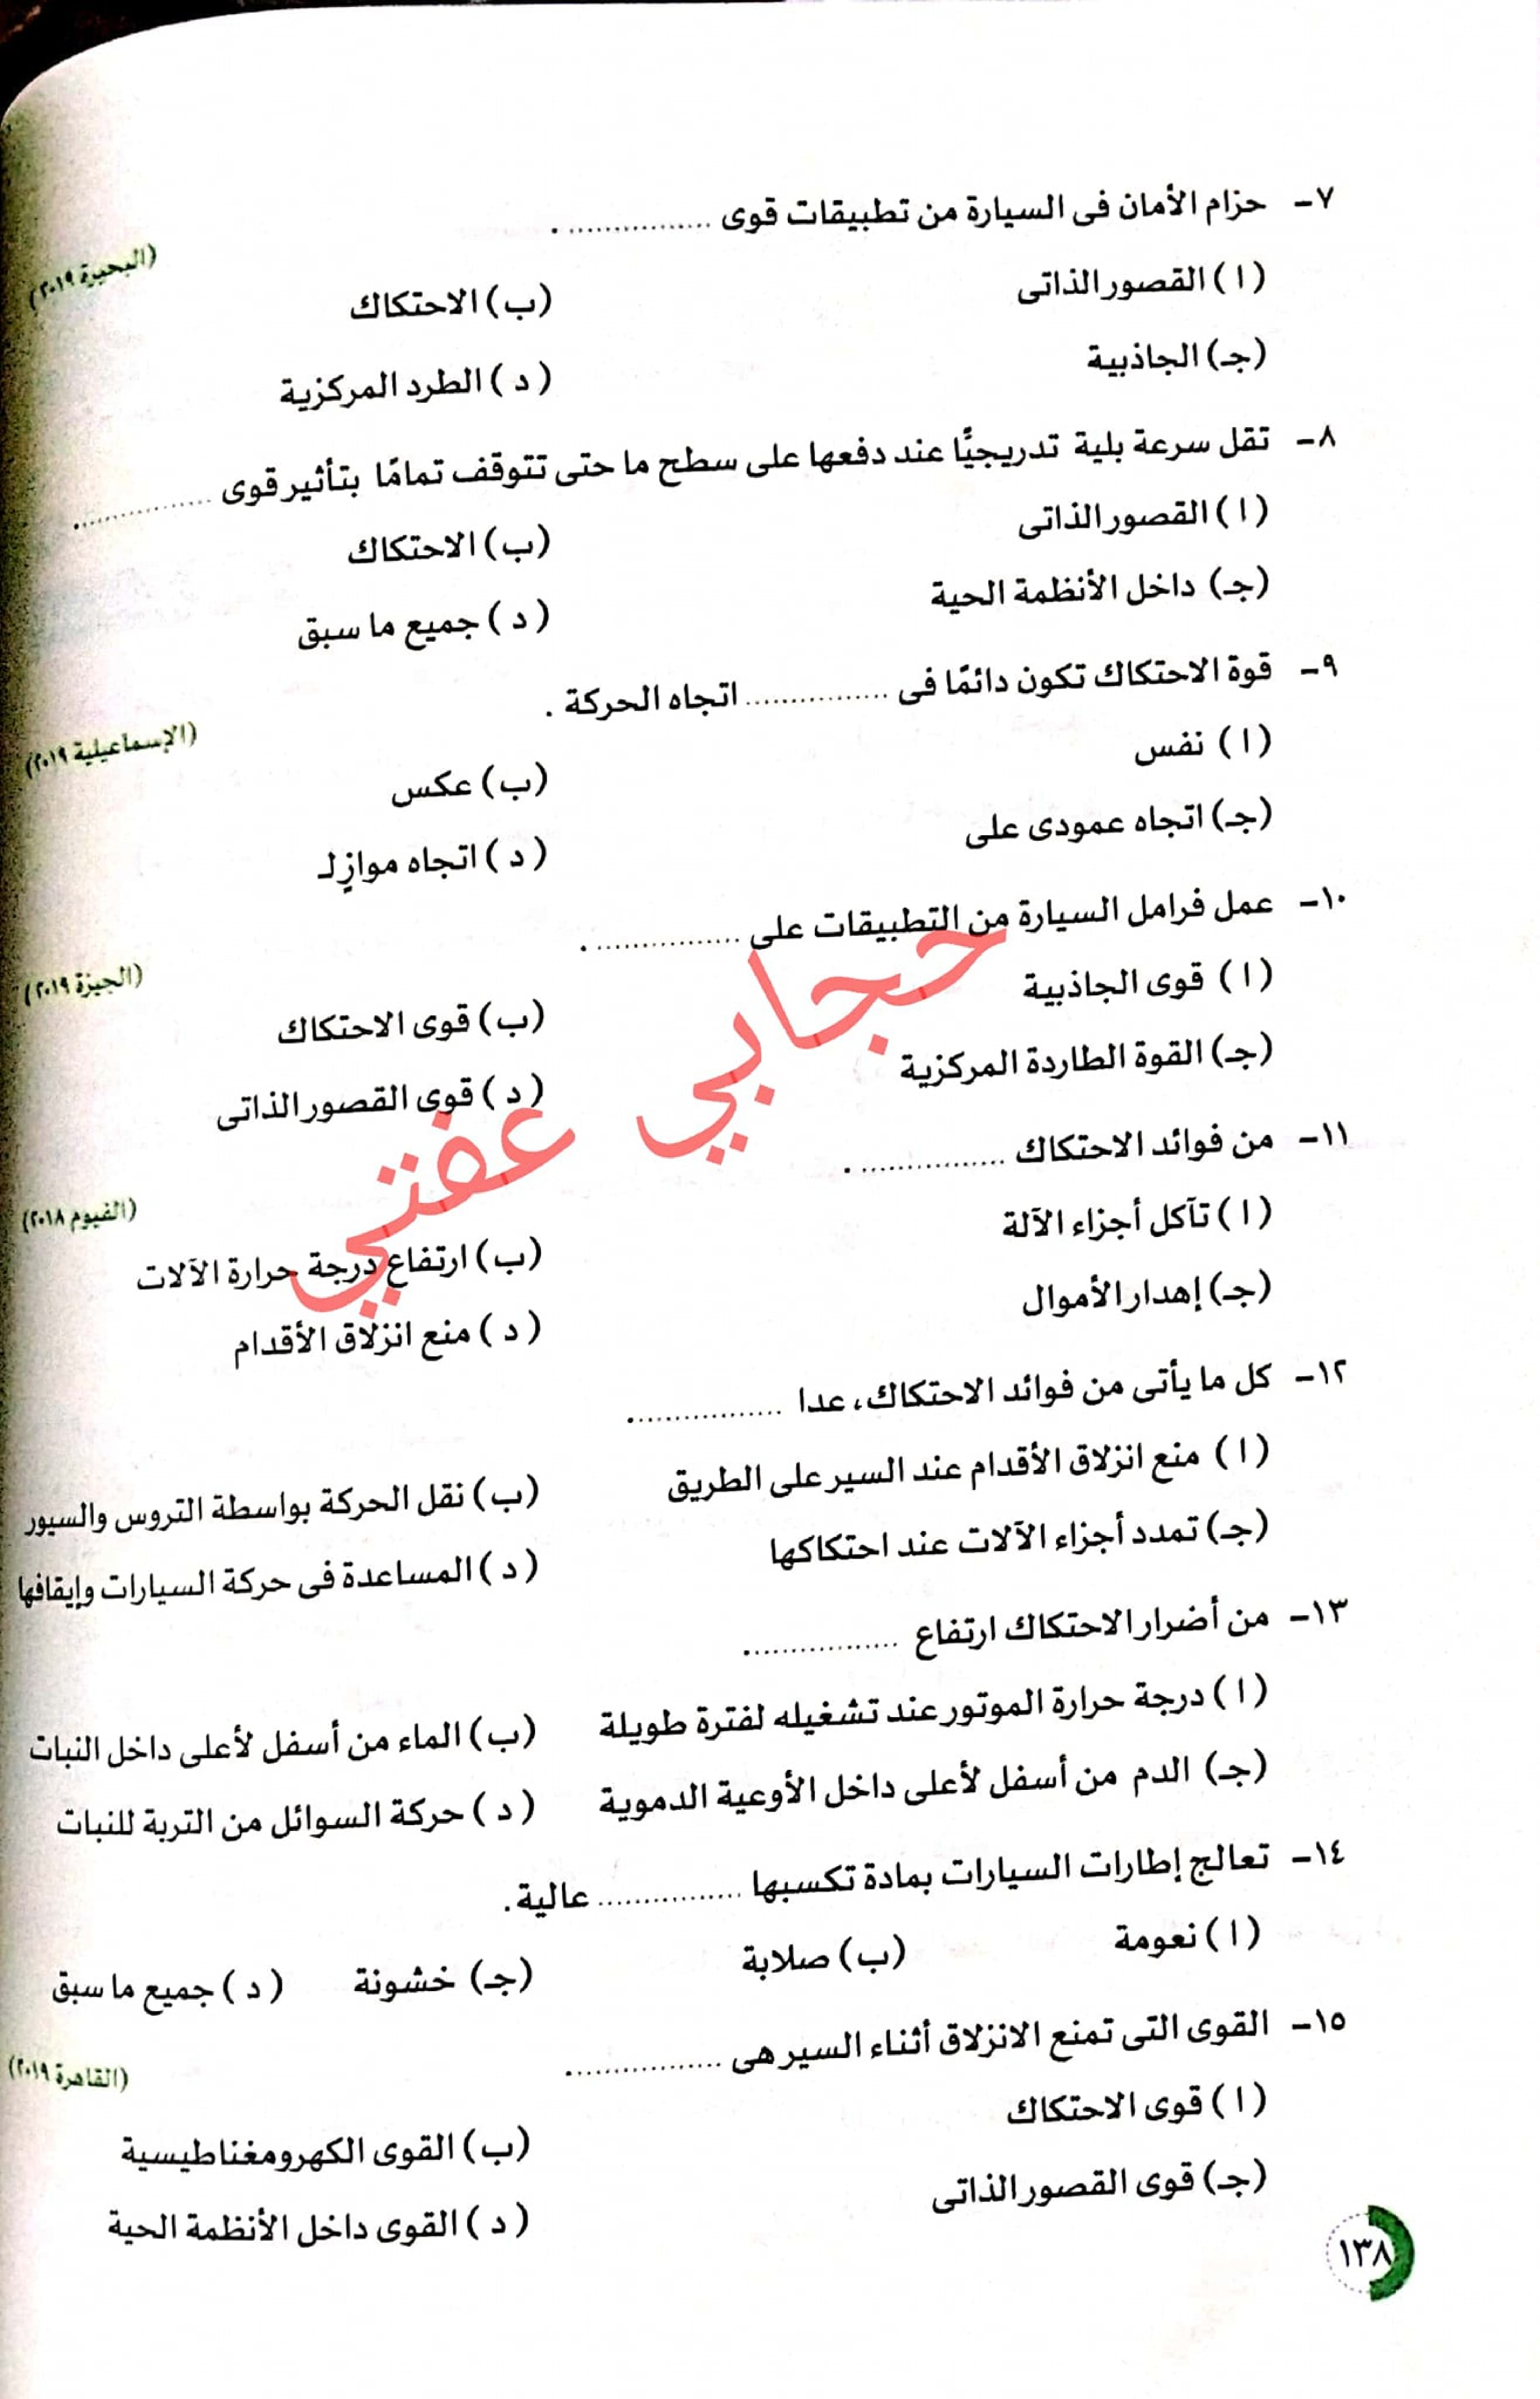 ٧- حزام الأمان فى السيارة من تطبيقات قوى ................ .
(البحيرة ٢٠١٩)
(ا) القصور الذاتى (ب) الاحتكاك
(جـ) الجاذبية (د) الطرد المركزية
٨- تقل سرعة بلية تدريجيًّا عند دفعها على سطح ما حتى تتوقف تمامًا بتأثير قوى ................ .
(ا) القصور الذاتى (ب) الاحتكاك
(جـ) داخل الأنظمة الحية (د) جميع ما سبق
٩- قوة الاحتكاك تكون دائمًا فى ................ اتجاه الحركة .
(الإسماعيلية ٢٠١٩)
(ا) نفس (ب) عكس
(جـ) اتجاه عمودى على (د) اتجاه موازٍ لـ
١٠- عمل فرامل السيارة من التطبيقات على ................ .
(الجيزة ٢٠١٩)
(ا) قوى الجاذبية (ب) قوى الاحتكاك
(جـ) القوة الطاردة المركزية (د) قوى القصور الذاتى
حجابي عفتي
١١- من فوائد الاحتكاك ................ .
(الفيوم ٢٠١٨)
(ا) تآكل أجزاء الآلة (ب) ارتفاع درجة حرارة الآلات
(جـ) إهدار الأموال (د) منع انزلاق الأقدام
١٢- كل ما يأتى من فوائد الاحتكاك، عدا ................ .
(ا) منع انزلاق الأقدام عند السير على الطريق (ب) نقل الحركة بواسطة التروس والسيور
(جـ) تمدد أجزاء الآلات عند احتكاكها (د) المساعدة فى حركة السيارات وإيقافها
١٣- من أضرار الاحتكاك ارتفاع ................ .
(ا) درجة حرارة الموتور عند تشغيله لفترة طويلة (ب) الماء من أسفل لأعلى داخل النبات
(جـ) الدم من أسفل لأعلى داخل الأوعية الدموية (د) حركة السوائل من التربة للنبات
١٤- تعالج إطارات السيارات بمادة تكسبها ................ عالية.
(ا) نعومة (ب) صلابة (جـ) خشونة (د) جميع ما سبق
١٥- القوى التى تمنع الانزلاق أثناء السير هى ................ .
(القاهرة ٢٠١٩)
(ا) قوى الاحتكاك (ب) القوى الكهرومغناطيسية
(جـ) قوى القصور الذاتى (د) القوى داخل الأنظمة الحية
١٣٨